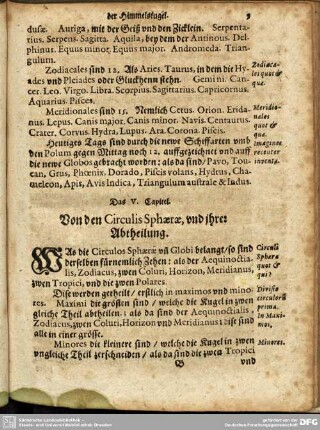 der Himmelskugel. 9
dusæ. Auriga, mit der Geiß vnd den Zicklein. Serpenta-
rius. Serpens. Sagitta. Aquila, bey dem der Antinous. Del-
phinus. Equus minor. Equus major. Andromeda. Trian-
gulum.
Zodiacales sind 12. Als Aries. Taurus, in dem die Hy-
ades vnd Pleiades oder Gluckhenn stehn. Gemini. Can-
cer. Leo. Virgo. Libra. Scorpius. Sagittarius. Capricornus.
Aquarius. Pisces.
Zodiaca-
les quot &
quæ.
Meridionales sind 15. Nemlich Cetus. Orion. Erida-
nus. Lepus. Canis major. Canis minor. Navis. Centaurus.
Crater. Corvus. Hydra, Lupus. Ara. Corona. Piscis.
Meridio-
nales
quot &
quæ.
Heutiges Tags sind durch die newe Schiffarten vmb
den Polum gegen Mittag noch 12. auffgezeichnet vnd auff
die newe Globos gebracht worden: als da sind / Pavo, Tou-
can, Grus, Phœnix. Dorado, Piscis volans, Hydrus, Cha-
mæleon, Apis, Avis Indica, Triangulum australe & Indus.
recenter
inventa.
Das V. Capitel.
Von den Circulis Sphæræ, vnd ihrer
Abtheilung.
WAs die Circulos Sphæræ vñ Globi belangt / so sind
derselben fürnemlich Zehen: als der Aequinoctia-
lis, Zodiacus, zwen Coluri, Horizon, Meridianus,
zwen Tropici, vnd die zwen Polares.
Circuli
Sphæræ
quot &
qui?
Dise werden getheilt / erstlich in maximos vnd mino-
res. Maximi die grösten sind / welche die Kugel in zwen
gleiche Theil abtheilen: als da sind der Aequinoctialis.
Zodiacus, zwen Coluri, Horizon vnd Meridianus: dise sind
alle in einer grösse.
Divisio
circulorũ
prima.
In Maxi-
mos,
Minores die kleinere sind / welche die Kugel in zwen
vngleiche Theil zerschneiden / als da sind die zwen Tropici
Minores.
vnd